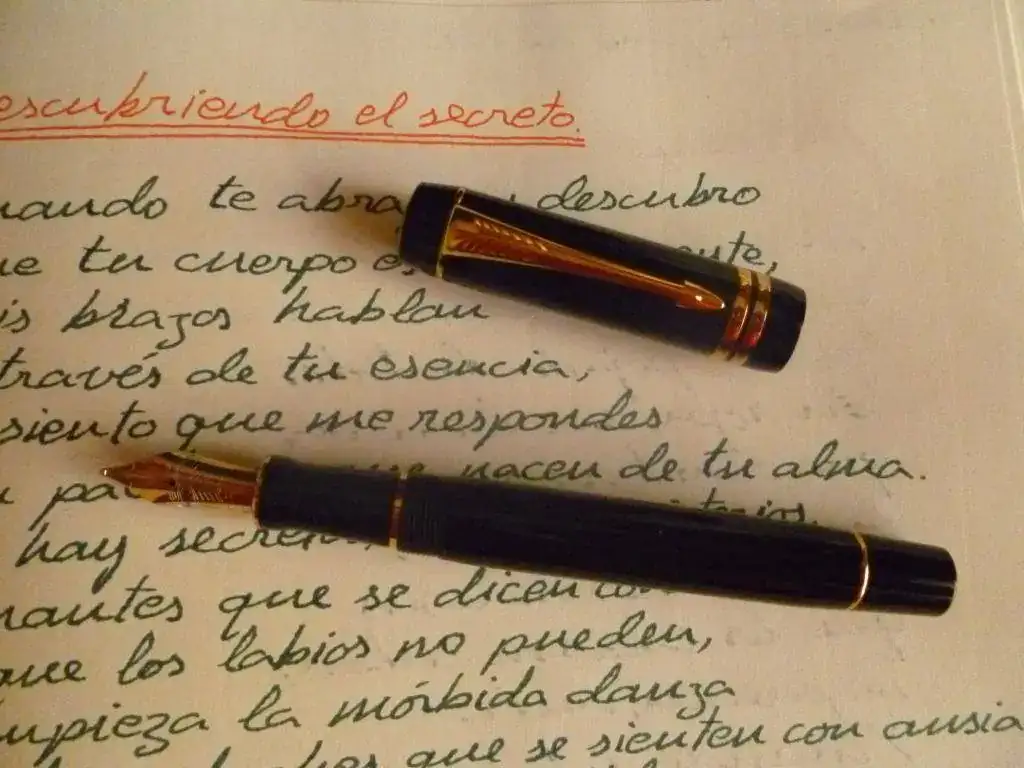 escubriendo el secreto.
uando te abra descubro
ue tu cuerpo
is brazos hablan
través de tu esencia,
siento que me respondes
nacen de tu alma.
hay
mantes que se dicen con
que los labios no pueden,
mpieza la mórbida danza
que se sienten con ansia